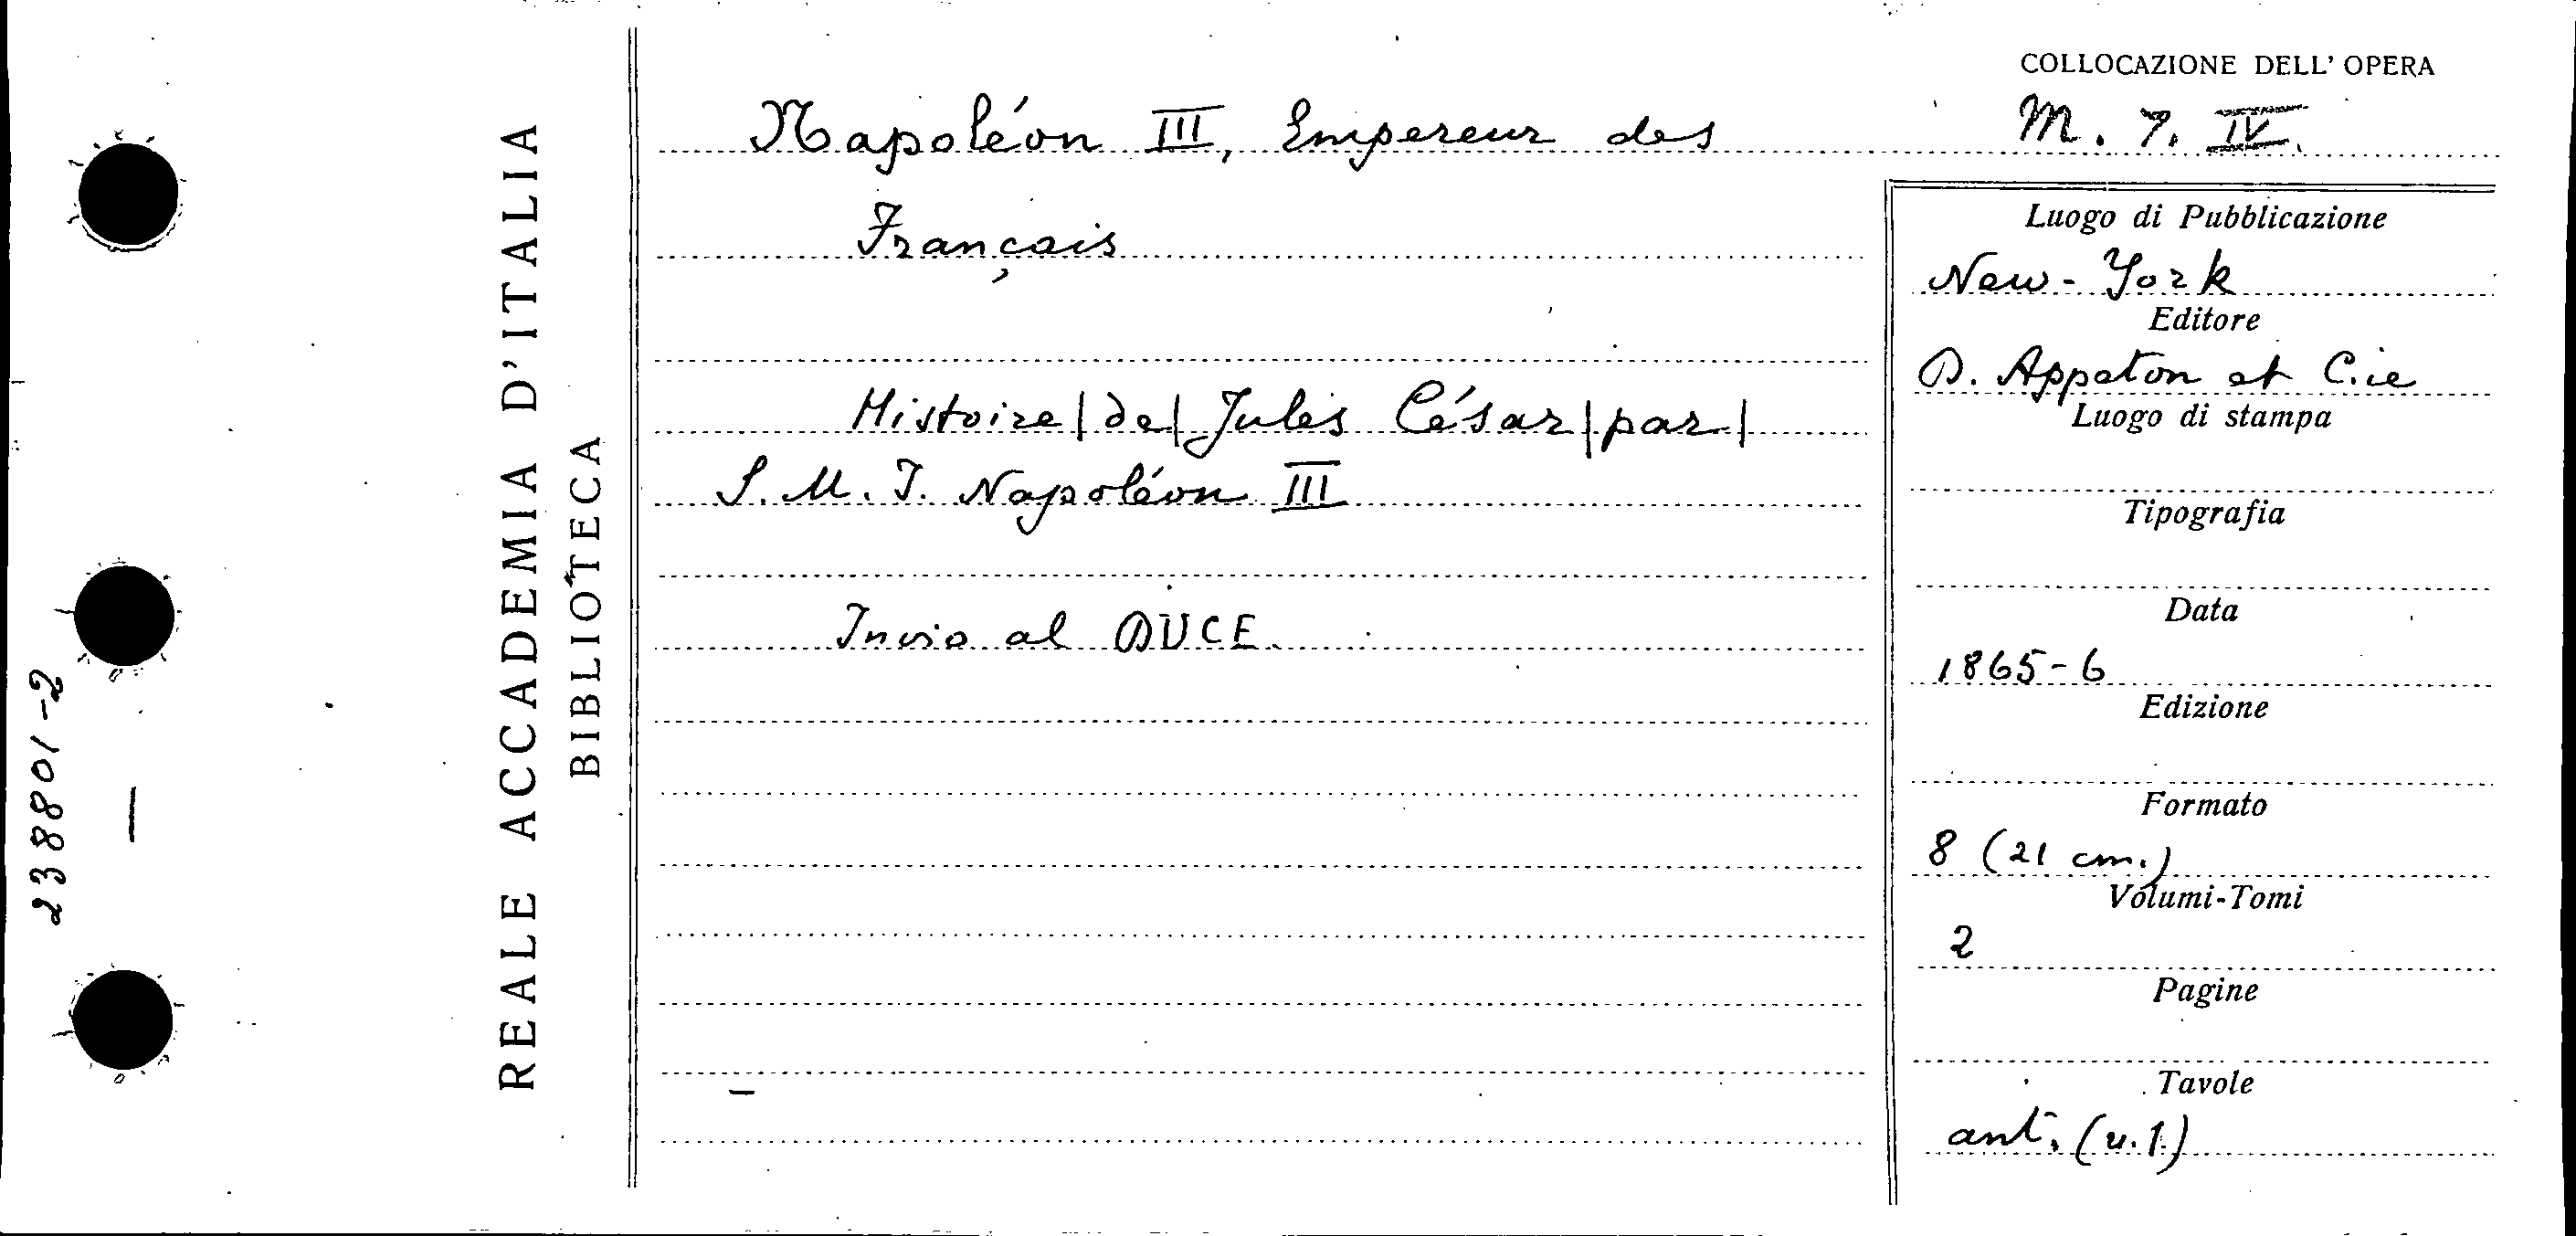 238801-2
REALE ACCADEMIA D'ITALIA
BIBLIOTECA
Napoléon III, Empereur des
Français
Histoire | de | Jules César | par |
S. M. I. Napoléon III
Invio al DUCE.
COLLOCAZIONE DELL' OPERA
M. 7. IV.
Luogo di Pubblicazione
New-York
Editore
D. Appeton et C.ie
Luogo di stampa
Tipografia
Data
1865-6
Edizione
Formato
8 (21 cm.)
Volumi-Tomi
2
Pagine
Tavole
ant. (v.1.)